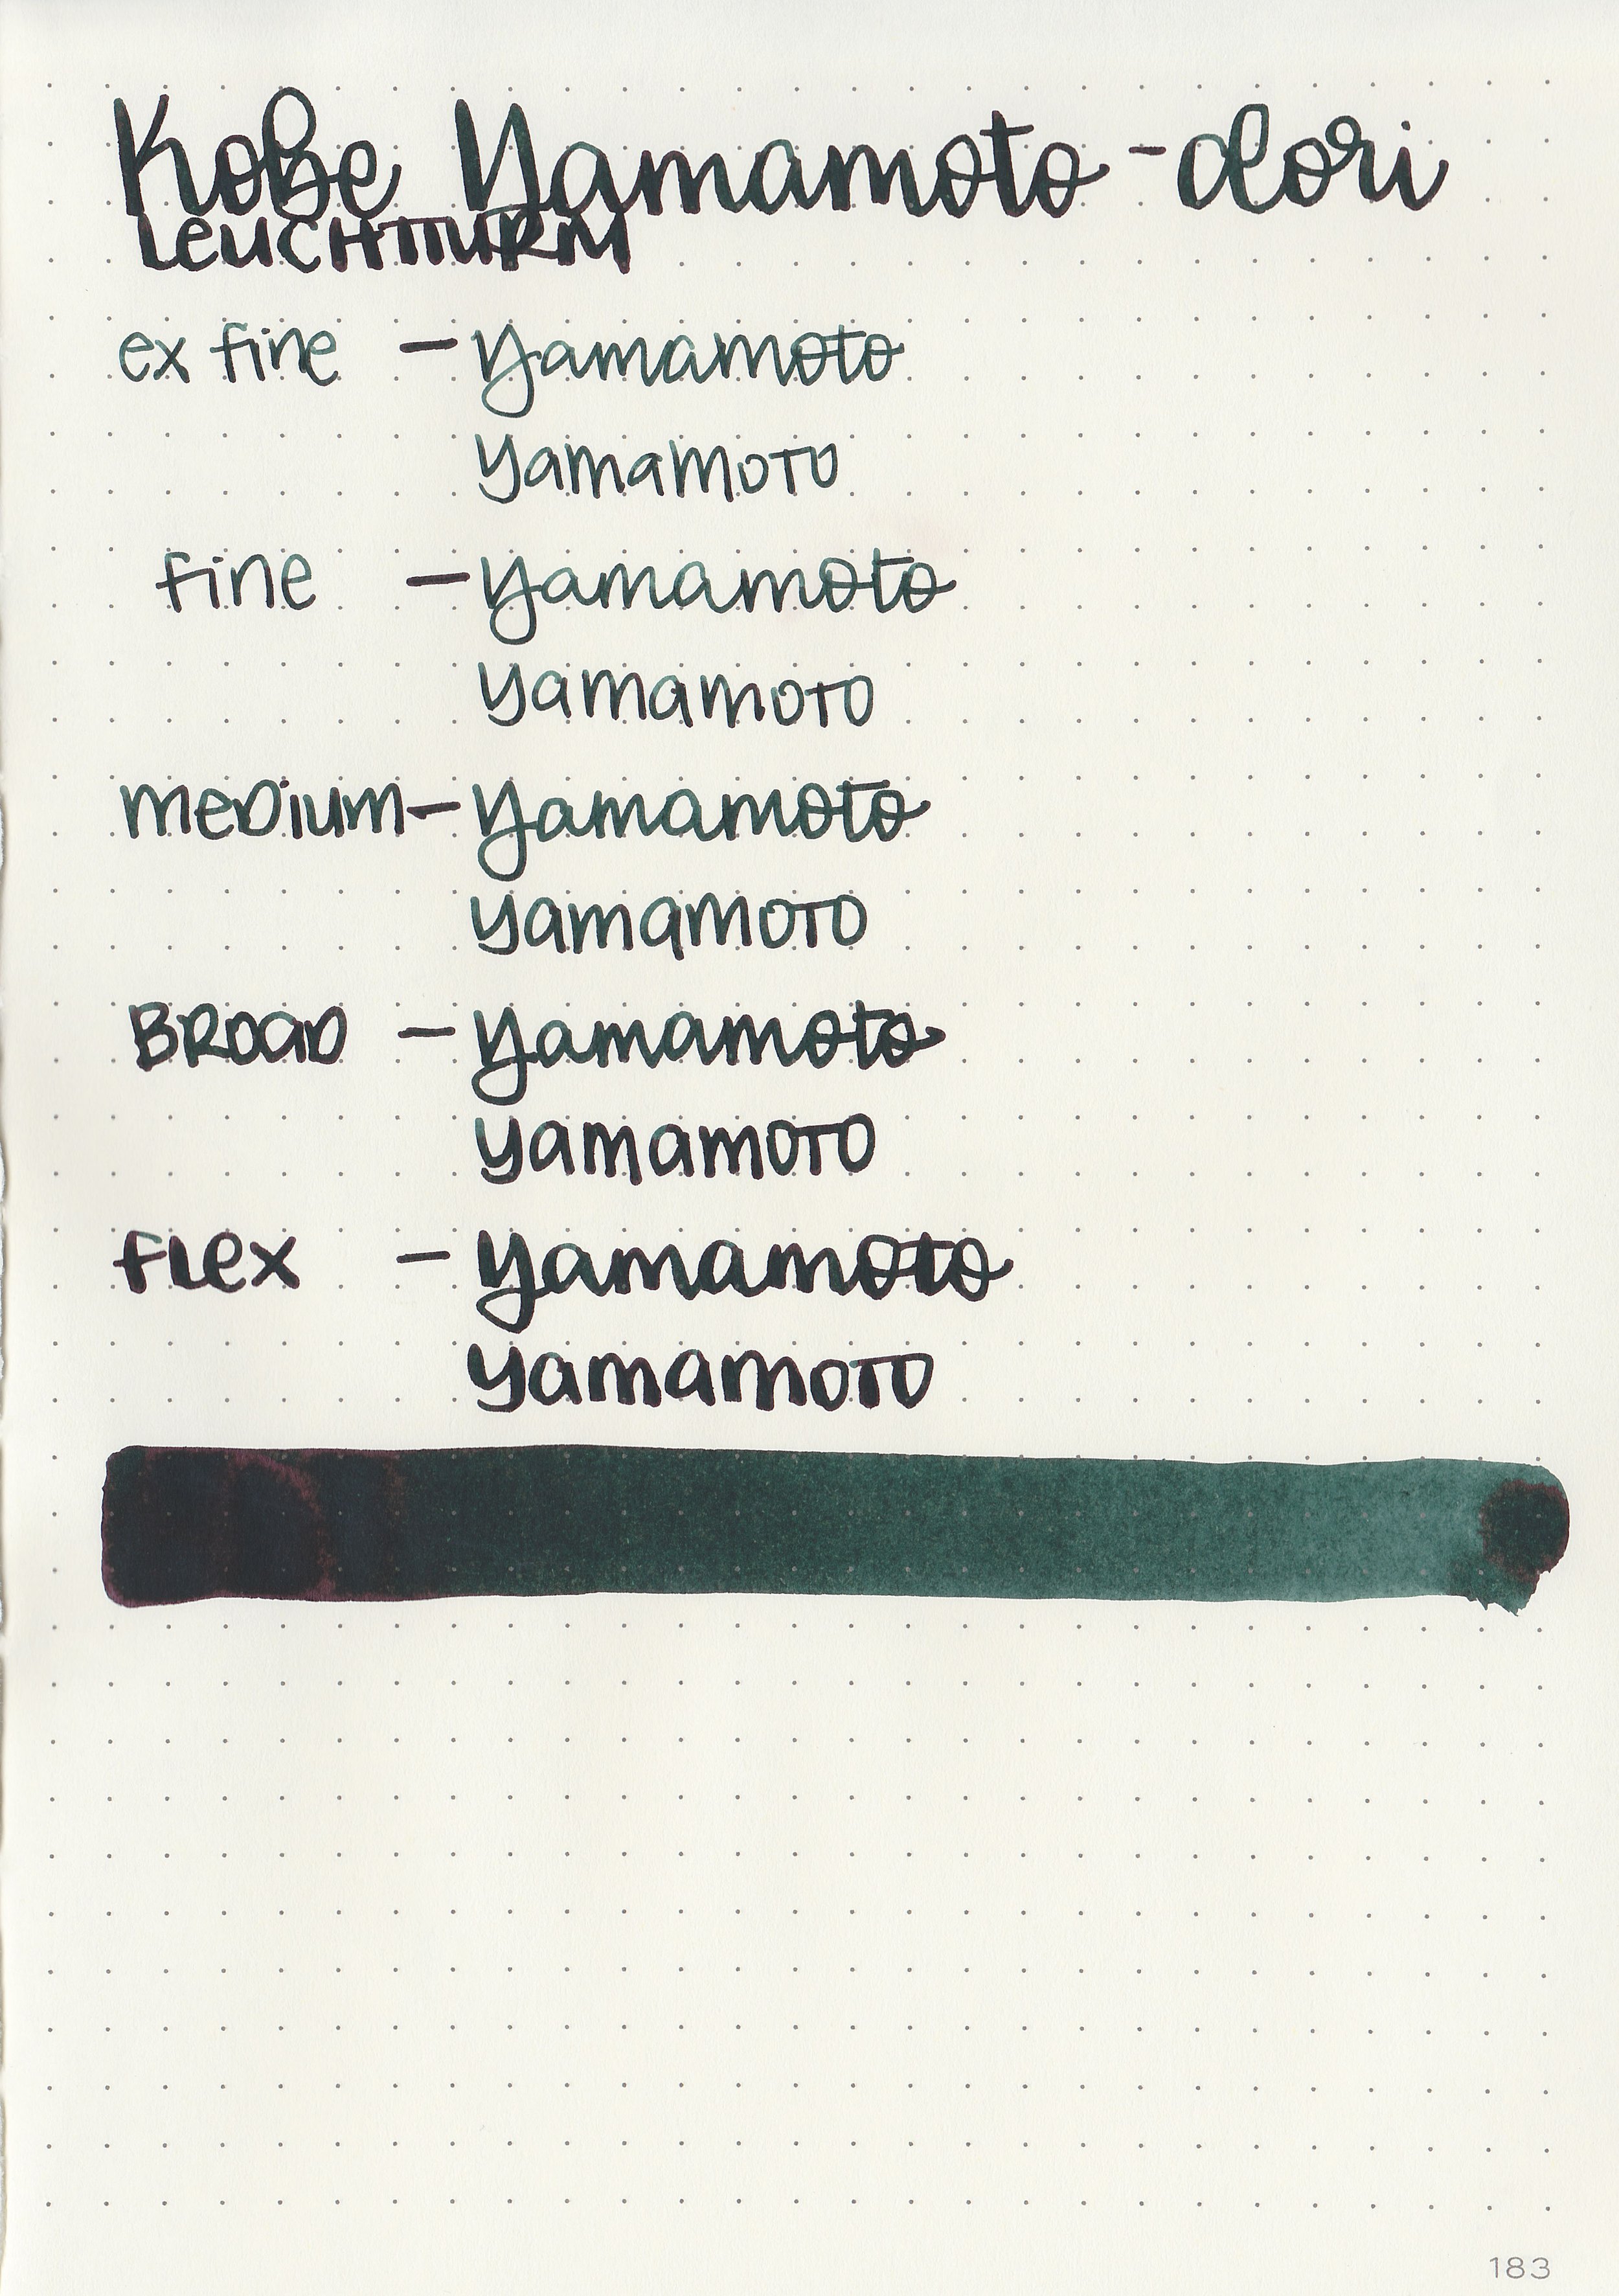 Kobe Yamamoto-dori
LEUCHTTURM
ex fine - yamamoto
yamamoto
fine - yamamoto
yamamoto
medium - yamamoto
yamamoto
Broad - yamamoto
yamamoto
flex - yamamoto
yamamoto
183